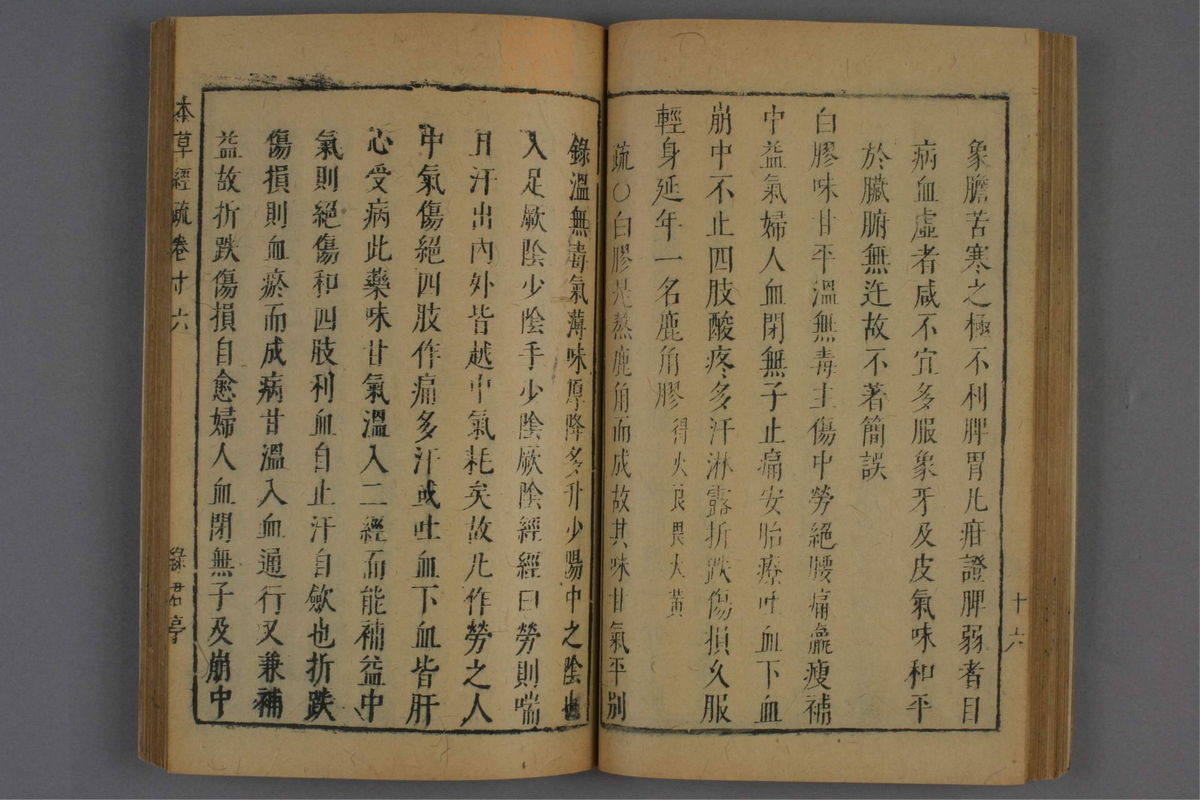 象膽苦寒之極不利脾胃凡疳證脾弱者目
病血虛者咸不宜多服象牙及皮氣味和平
於臟腑無迕故不著簡誤
白膠味甘平溫無毒主傷中勞絕腰痛羸瘦補
中益氣婦人血閉無子止痛安胎療吐血下血
崩中不止四肢酸疼多汗淋露折跌傷損久服
輕身延年一名鹿角膠得火良畏大黃
疏〇白膠是熬鹿角而成故其味甘氣平別
十六
錄溫無毒氣薄味厚降多升少陽中之陰也
入足厥陰少陰手少陰厥陰經經曰勞則喘
且汗出內外皆越中氣耗矣故凡作勞之人
中氣傷絕四肢作痛多汗或吐血下血皆肝
心受病此藥味甘氣溫入二經而能補益中
氣則絕傷和四肢利血自止汗自歛也折跌
傷損則血瘀而成病甘溫入血通行又兼補
益故折跌傷損自愈婦人血閉無子及崩中
本草經疏卷十六
綠君亭